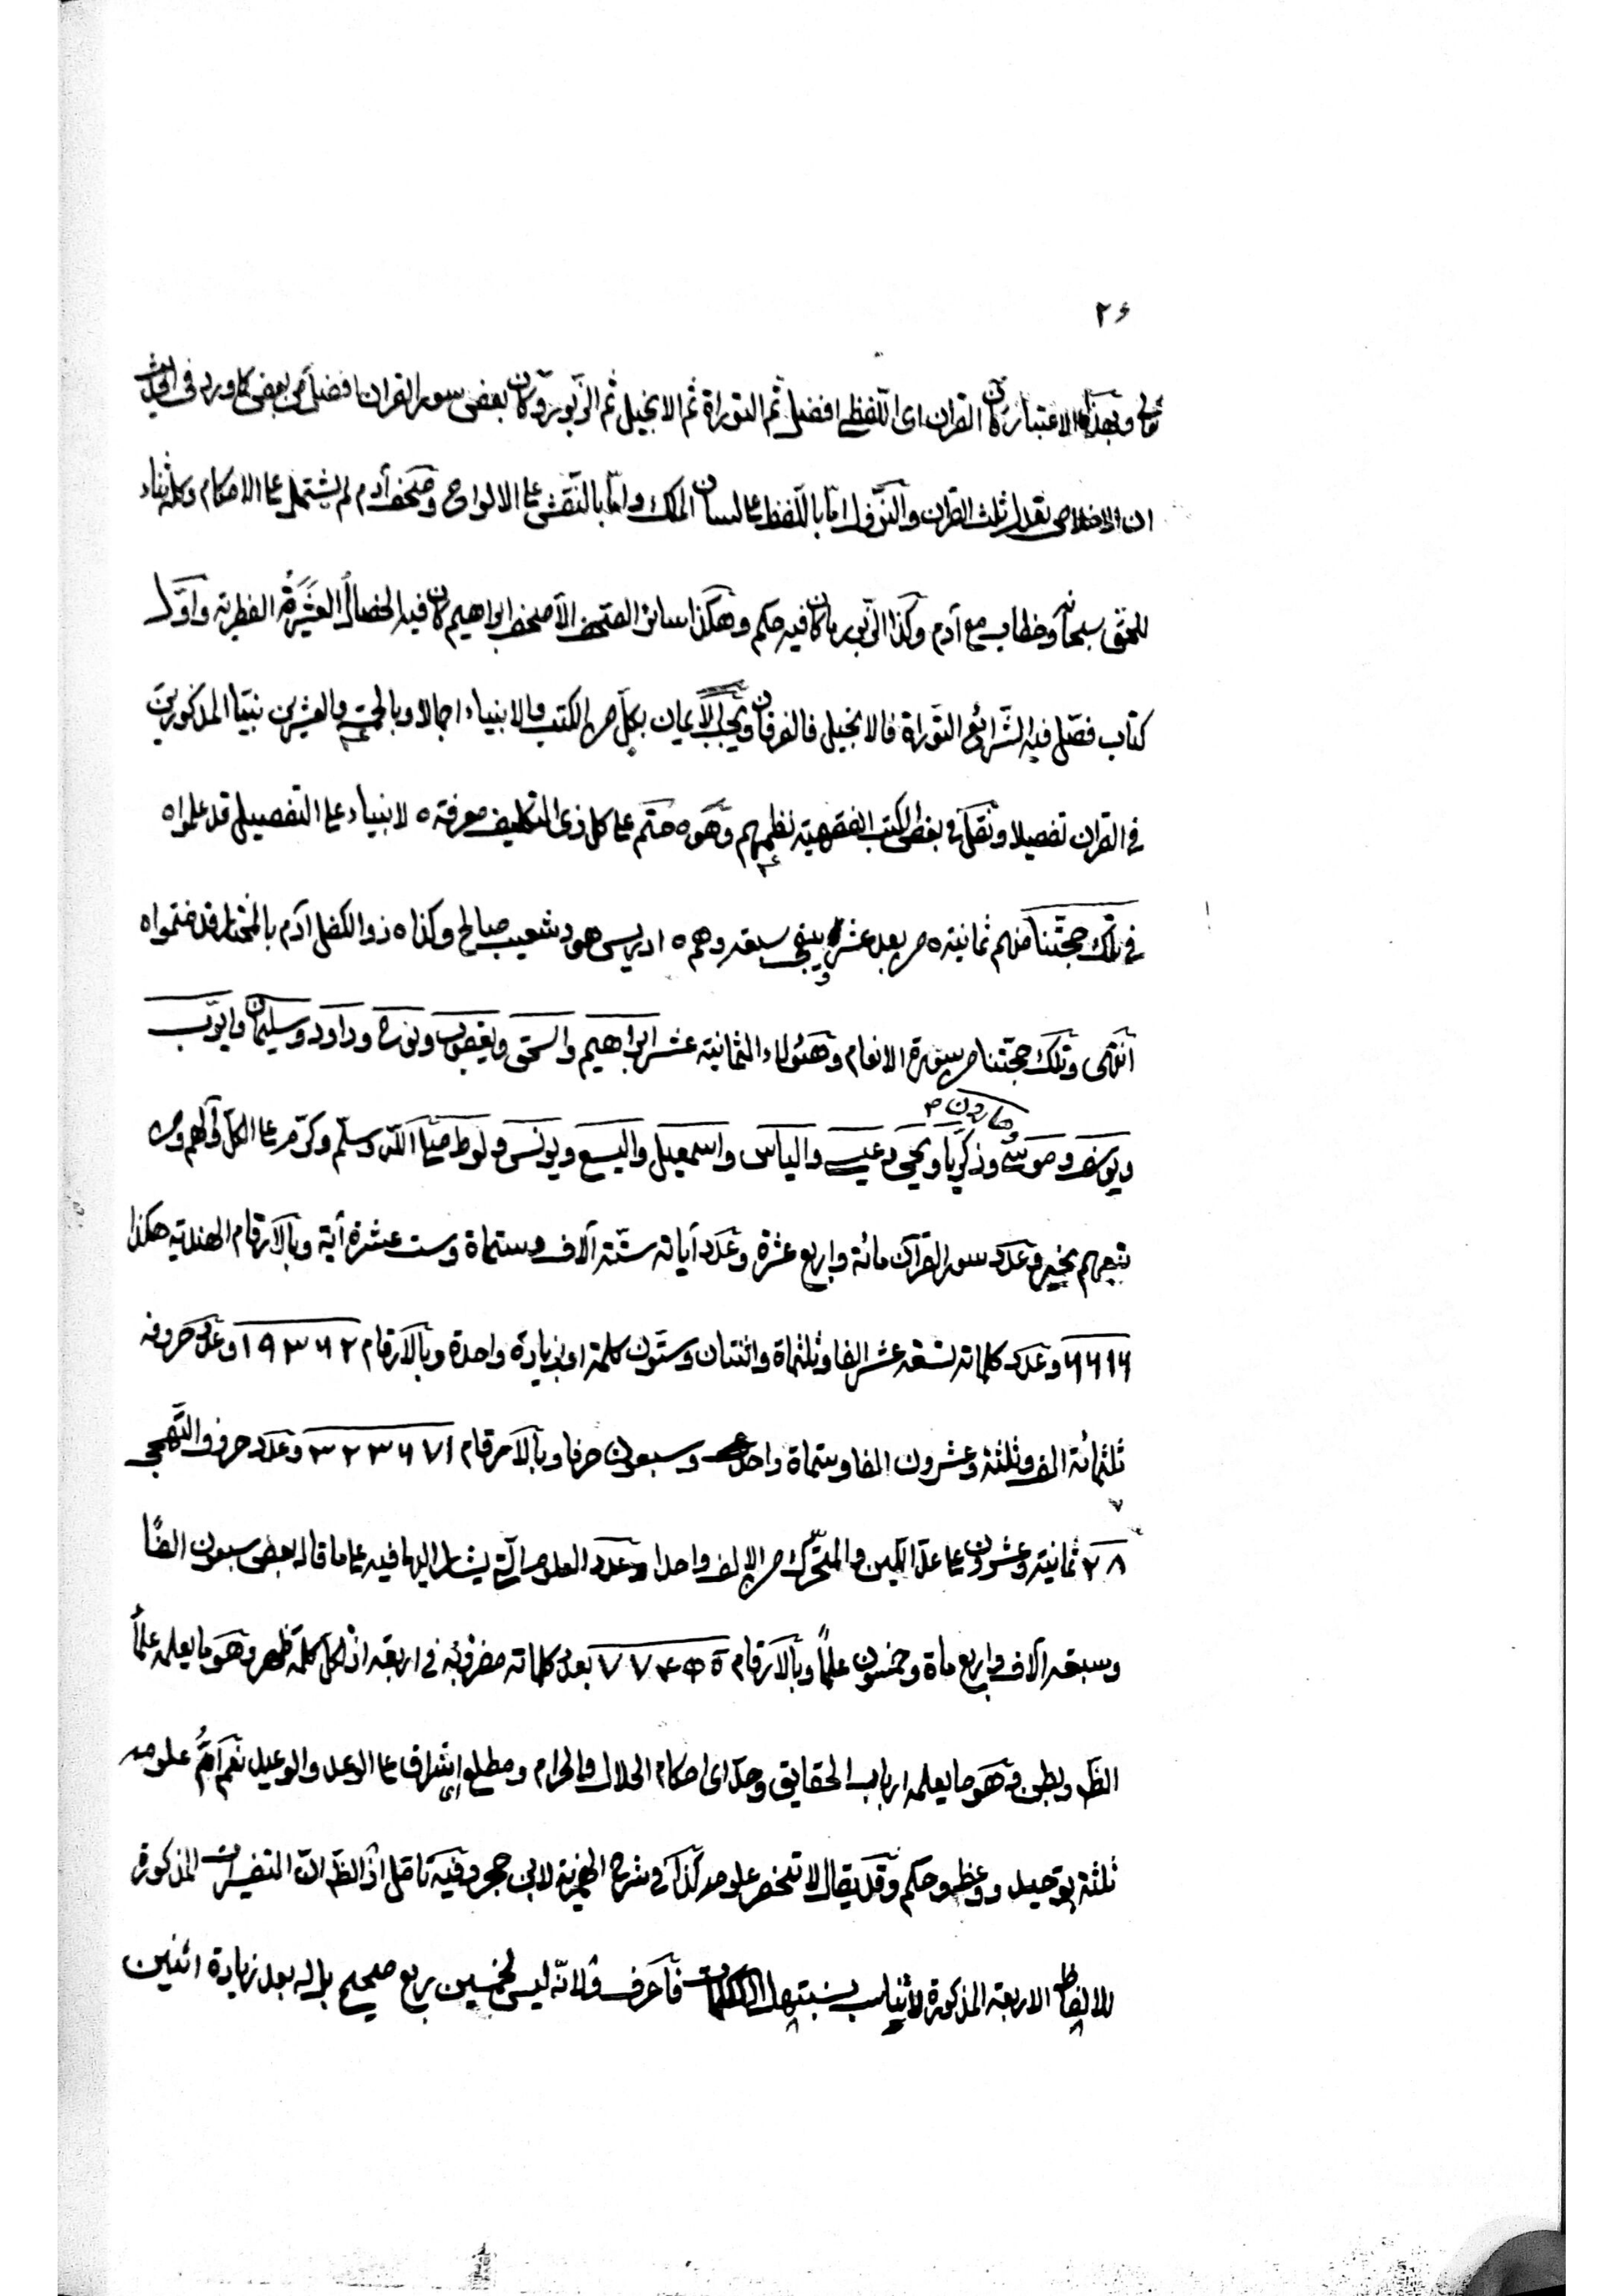 ٢٦
تعالى وبهذا الاعتبار كان القران اى اللفظى افضل ثم التوراة ثم الانجيل ثم الزبور وكان بعض سور القران افضل من بعض كما ورد فى الحديث
ان الاخلاص تعدل ثلث القران والنزول امّا باللفظ على لسان الملك وامّا بالنقش على الالواح وصحف آدم لم يشتمل على الاحكام وكله ثناء
للحق سبحانه وخطاب مع آدم وكذا الزبور ما كان فيه حكم وهكذا سائر الصحف الا صحف ابراهيم كان فيه الخصال العشرة الفطرية واوّل
كتاب فصّل فيه الشرائع التوراة فالانجيل فالفرقان ويجب الايمان بكل من الكتب والانبياء اجمالا وبالخمسة والعشرين نبيّا المذكورين
فى القران تفصيلا ونقل فى بعض الكتب الفقهية نظمهم وهو ه حتم على كل ذى التكليف معرفة ه لانبياء على التفصيل قد علموا ه
فى تلك حجتنا منهم ثمانية ه من بعد عشر ويبقى سبعة وهم ه ادريس هود شعيب صالح وكذا ه ذو الكفل آدم بالمختار قد ختموا ه
انتهى وتلك حجتنا من سورة الانعام وهئولاء الثمانية عشر ابراهيم واسحق ويعقوب ونوح وداود وسليمان وايّوب
ويوسف وموسى وهارون وزكريا ويحيى وعيسى والياس واسمعيل واليسع ويونس ولوط صلى الله وسلّم وكرّم على الكل وآلهم ومن
تبعهم بخير وعدد سور القرآن مائة واربع عشرة وعدد آياته ستّة آلاف وستماة وست عشرة آية وبالارقام الهندية هكذا
٦٦١٦ وعدد كلماته تسعة عشر الفا وثلثماة واثنتان وستون كلمة او بزيادة واحدة وبالارقام ١٩٣٦٢ وعدد حروفه
ثلثمائة الف وثلثة وعشرون الفا وستماة واحد وسبعون حرفا وبالارقام ٣٢٣٦٧١ وعدد حروف التهجى
٢٨ ثمانية وعشرون على عدّ اللين والمتحرّك من الالف واحدا وعدد العلوم التى يشار اليها فيه على ما قاله بعض سبعون الفًا
وسبعة آلاف واربع ماة وخمسون علمًا وبالارقام ٧٧٤٥٠ بعدد كلماته مضروبة فى اربعة اذ لكل كلمة ظهر وهو ما يعلمه علماء
الظ وبطن وهو ما يعلمه ارباب الحقايق وحدّ اى احكام الحلال والحرام ومطلع اى اشراف على الوعد والوعيد نعم امّ علومه
ثلثة توحيد ووعظ وحكم وقد يقال لا تنحصر علومه كذا فى شرح الهمزية لابن حجر وفيه تامّل اذ الظ انّ التفسيرات المذكورة
للالفاظ الاربعة المذكورة لا يناسب نسبتها الى الكلمات فاحرف ولانّه ليس لخمسين ربع صحيح بل له بعد زيادة اثنين